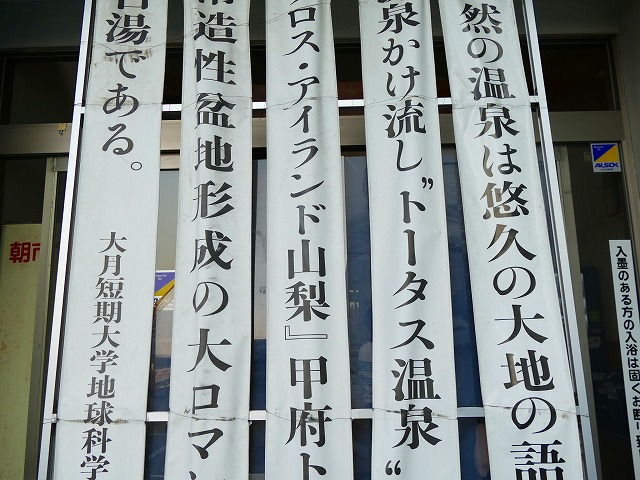 然の温泉は悠久の大地の語
泉かけ流し〝トータス温泉〟
ロス・アイランド山梨』甲府ト
構造性盆地形成の大ロマン
名湯である。
大月短期大学地球科学
入墨のある方の入浴は固くお断り
ALSOK
朝市